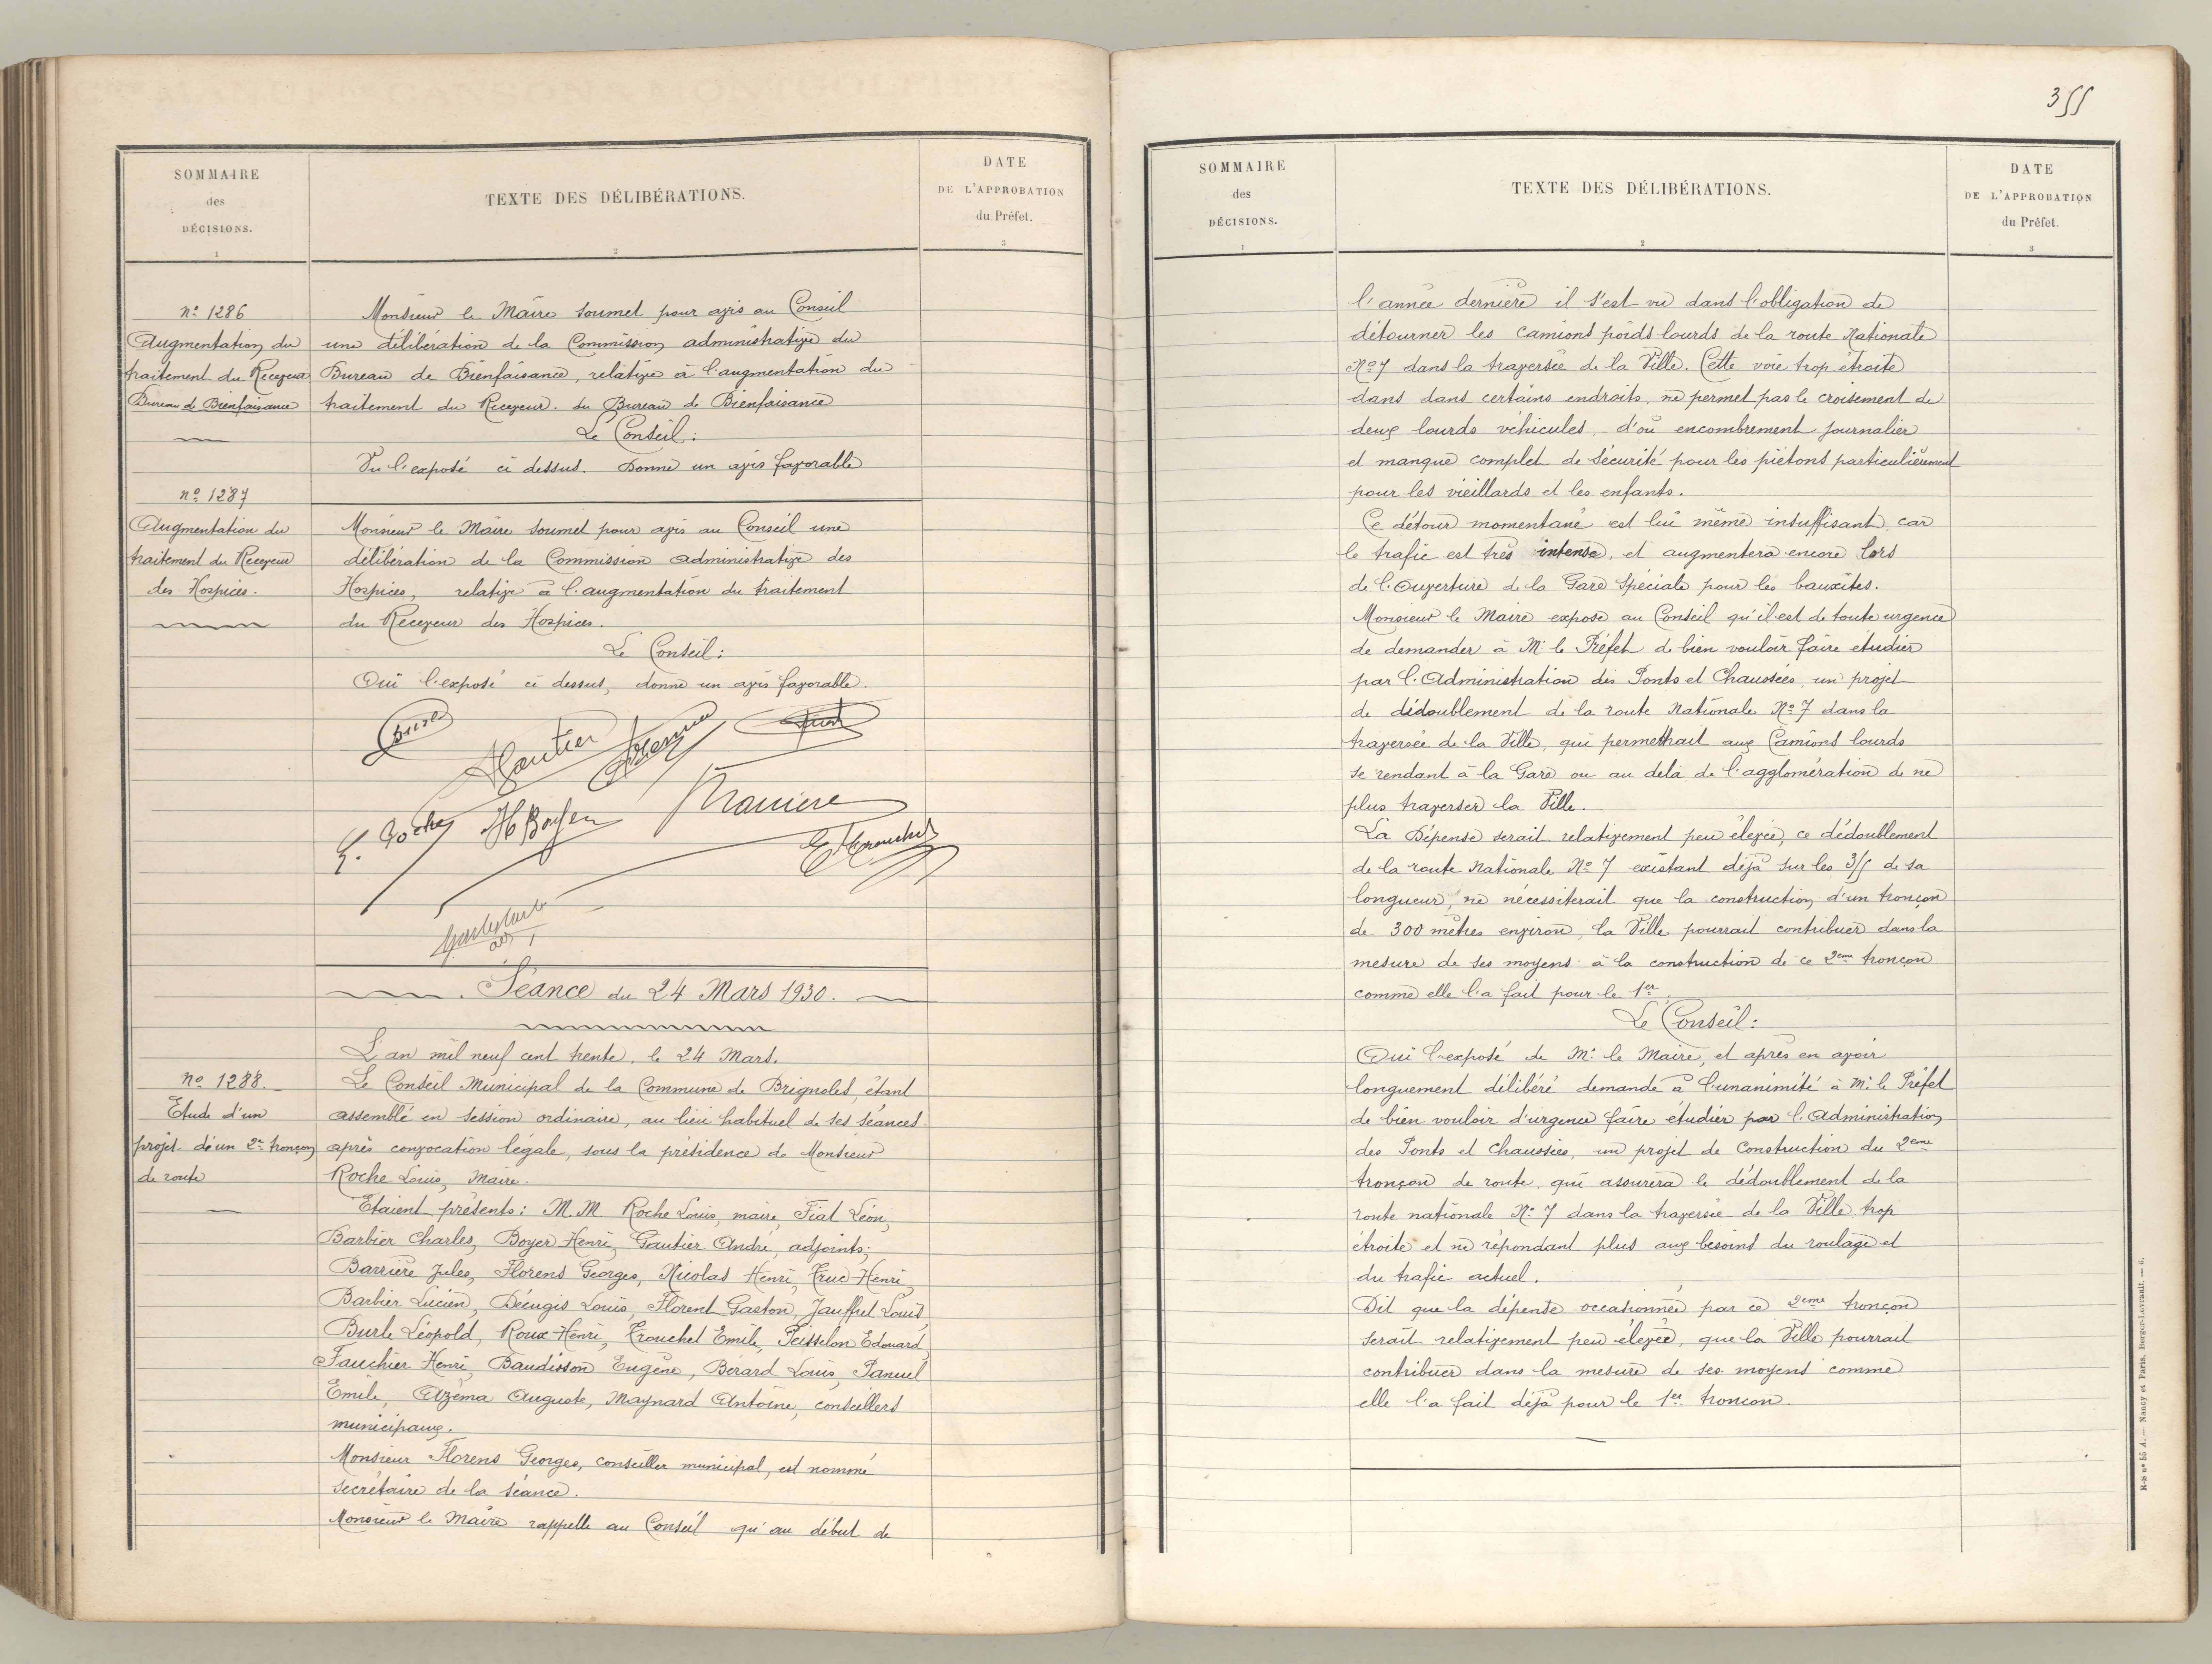 SOMMAIRE
des
DÉCISIONS.
1
TEXTE DES DÉLIBÉRATIONS.
2
DATE
DE L'APPROBATION
du Préfet.
3
nº 1286
Augmentation du
traitement du Receveur
Bureau de Bienfaisance
Monsieur le Maire soumet pour avis au Conseil
une délibération de la Commission administrative du
Bureau de Bienfaisance, relative à l'augmentation du
traitement du Receveur. du Bureau de Bienfaisance
Le Conseil:
Vu l'exposé ci dessus. Donne un avis favorable
nº 1287
Augmentation du
traitement du Receveur
des Hospices.
Monsieur le Maire soumet pour avis au Conseil une
délibération de la Commission administrative des
Hospices, relative à l'augmentation du traitement
du Receveur des Hospices.
Le Conseil:
Oui l'exposé ci dessus, donne un avis favorable.
Gautier
L. Roche HBoyer Barriere
E Trouchet
Séance du 24 Mars 1930.
L'an mil neuf cent trente, le 24 Mars.
nº 1288.
Etude d'un
projet d'un 2e tronçon
de route
Le Conseil Municipal de la Commune de Brignoles, étant
assemblé en session ordinaire, au lieu habituel de ses séances
après convocation légale, sous la présidence de Monsieur
Roche Louis, Maire.
Etaient présents: M.M. Roche Louis, maire, Fiat Léon,
Barbier Charles, Boyer Henri, Gautier André, adjoints;
Barrière Jules, Florens Georges, Nicolas Henri, Truc Henri,
Barbier Lucien, Décugis Louis, Florent Gaston, Jauffret Louis,
Burle Léopold, Roux Henri, Trouchet Emile, Peisselon Edouard
Fauchier Henri, Baudisson Eugène, Bérard Louis, Panuel
Emile, Azéma Auguste, Maynard Antoine, conseillers
municipaux.
Monsieur Florens Georges, conseiller municipal, est nommé
secrétaire de la séance.
Monsieur le Maire rappelle au Conseil qu'au début de
355
SOMMAIRE
des
DÉCISIONS.
1
TEXTE DES DÉLIBÉRATIONS.
2
DATE
DE L'APPROBATION
du Préfet.
3
l'année dernière il s'est vu dans l'obligation de
détourner les camions poids lourds de la route Nationale
Nº 7 dans la traversée de la Ville. Cette voie trop étroite
dans dans certains endroits, ne permet pas le croisement de
deux lourds véhicules, d'où encombrement journalier
et manque complet de sécurité pour les piétons particulièrement
pour les vieillards et les enfants.
Ce détour momentané est lui même insuffisant, car
le trafic est très intense, et augmentera encore lors
de l'Ouverture de la Gare Spéciale pour les bauxites.
Monsieur le Maire expose au Conseil qu'il est de toute urgence
de demander à Mr le Préfet de bien vouloir faire étudier
par l'Administration des Ponts et Chaussées, un projet
de dédoublement de la route Nationale Nº 7 dans la
traversée de la Ville, qui permettrait aux Camions lourds
se rendant à la Gare ou au delà de l'agglomération de ne
plus traverser la Ville.
La Dépense serait relativement peu élevée, ce dédoublement
de la route Nationale Nº 7 existant déjà sur les 3/5 de sa
longueur, ne nécessiterait que la construction d'un tronçon
de 300 mètres environ, la Ville pourrait contribuer dans la
mesure de ses moyens à la construction de ce 2eme tronçon
comme elle l'a fait pour le 1er.
Le Conseil:
Oui l'exposé de Mr le Maire, et après en avoir
longuement délibéré demande à l'unanimité à Mr le Préfet
de bien vouloir d'urgence faire étudier par l'Administration
des Ponts et Chaussées, un projet de Construction du 2eme
tronçon de route, qui assurera le dédoublement de la
route nationale Nº 7 dans la traversée de la Ville, trop
étroite et ne répondant plus aux besoins du roulage et
du trafic actuel.
Dit que la dépense occasionnée par ce 2eme tronçon
serait relativement peu élevée, que la Ville pourrait
contribuer dans la mesure de ses moyens comme
elle l'a fait déjà pour le 1er troncon.
R-S nº 55 A. — Nancy et Paris, Berger-Levrault. — 6.